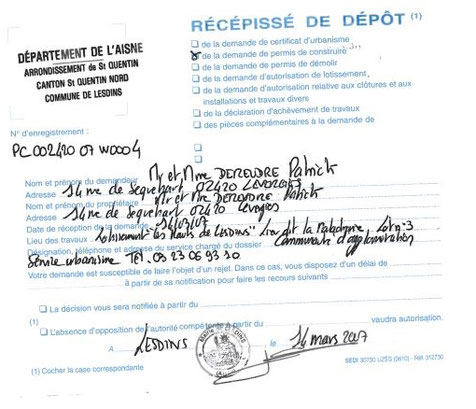 RÉCÉPISSÉ DE DÉPÔT (1)
DÉPARTEMENT DE L'AISNE
ARRONDISSEMENT de St QUENTIN
CANTON St QUENTIN NORD
COMMUNE DE LESDINS
de la demande de certificat d'urbanisme
de la demande de permis de construire
de la demande de permis de démolir
de la demande d'autorisation de lotissement,
de la demande d'autorisation relative aux clôtures et aux
installations et travaux divers
de la déclaration d'achèvement de travaux
des pièces complémentaires à la demande de
N° d'enregistrement :
PC 002420 07 W0004
Nom et prénom du demandeur My et Mme DEREUDRE Patrick
Adresse 14 rue de Sequehart 02420
Nom et prénom du propriétaire Mr et Me DEREUDRE Patrick
Adresse 14 rue de Sequehart 02420
Date de réception de la demande : 14/03/07
Lieu des travaux : Lotissement "les Hauts de Lesdins" lieu dit la Lot n°3
Désignation, téléphone et adresse du service chargé du dossier : Communauté d'agglomération
Service urbanisme TEL. 03 23 06 93 30
Votre demande est susceptible de faire l'objet d'un rejet. Dans ce cas, vous disposez d'un délai de
à partir de sa notification pour faire les recours suivants
La décision vous sera notifiée à partir du
(1)
L'absence d'opposition de l'autorité compétente à partir du vaudra autorisation.
A LESDINS le 14 mars 2007
(1) Cocher la case correspondante